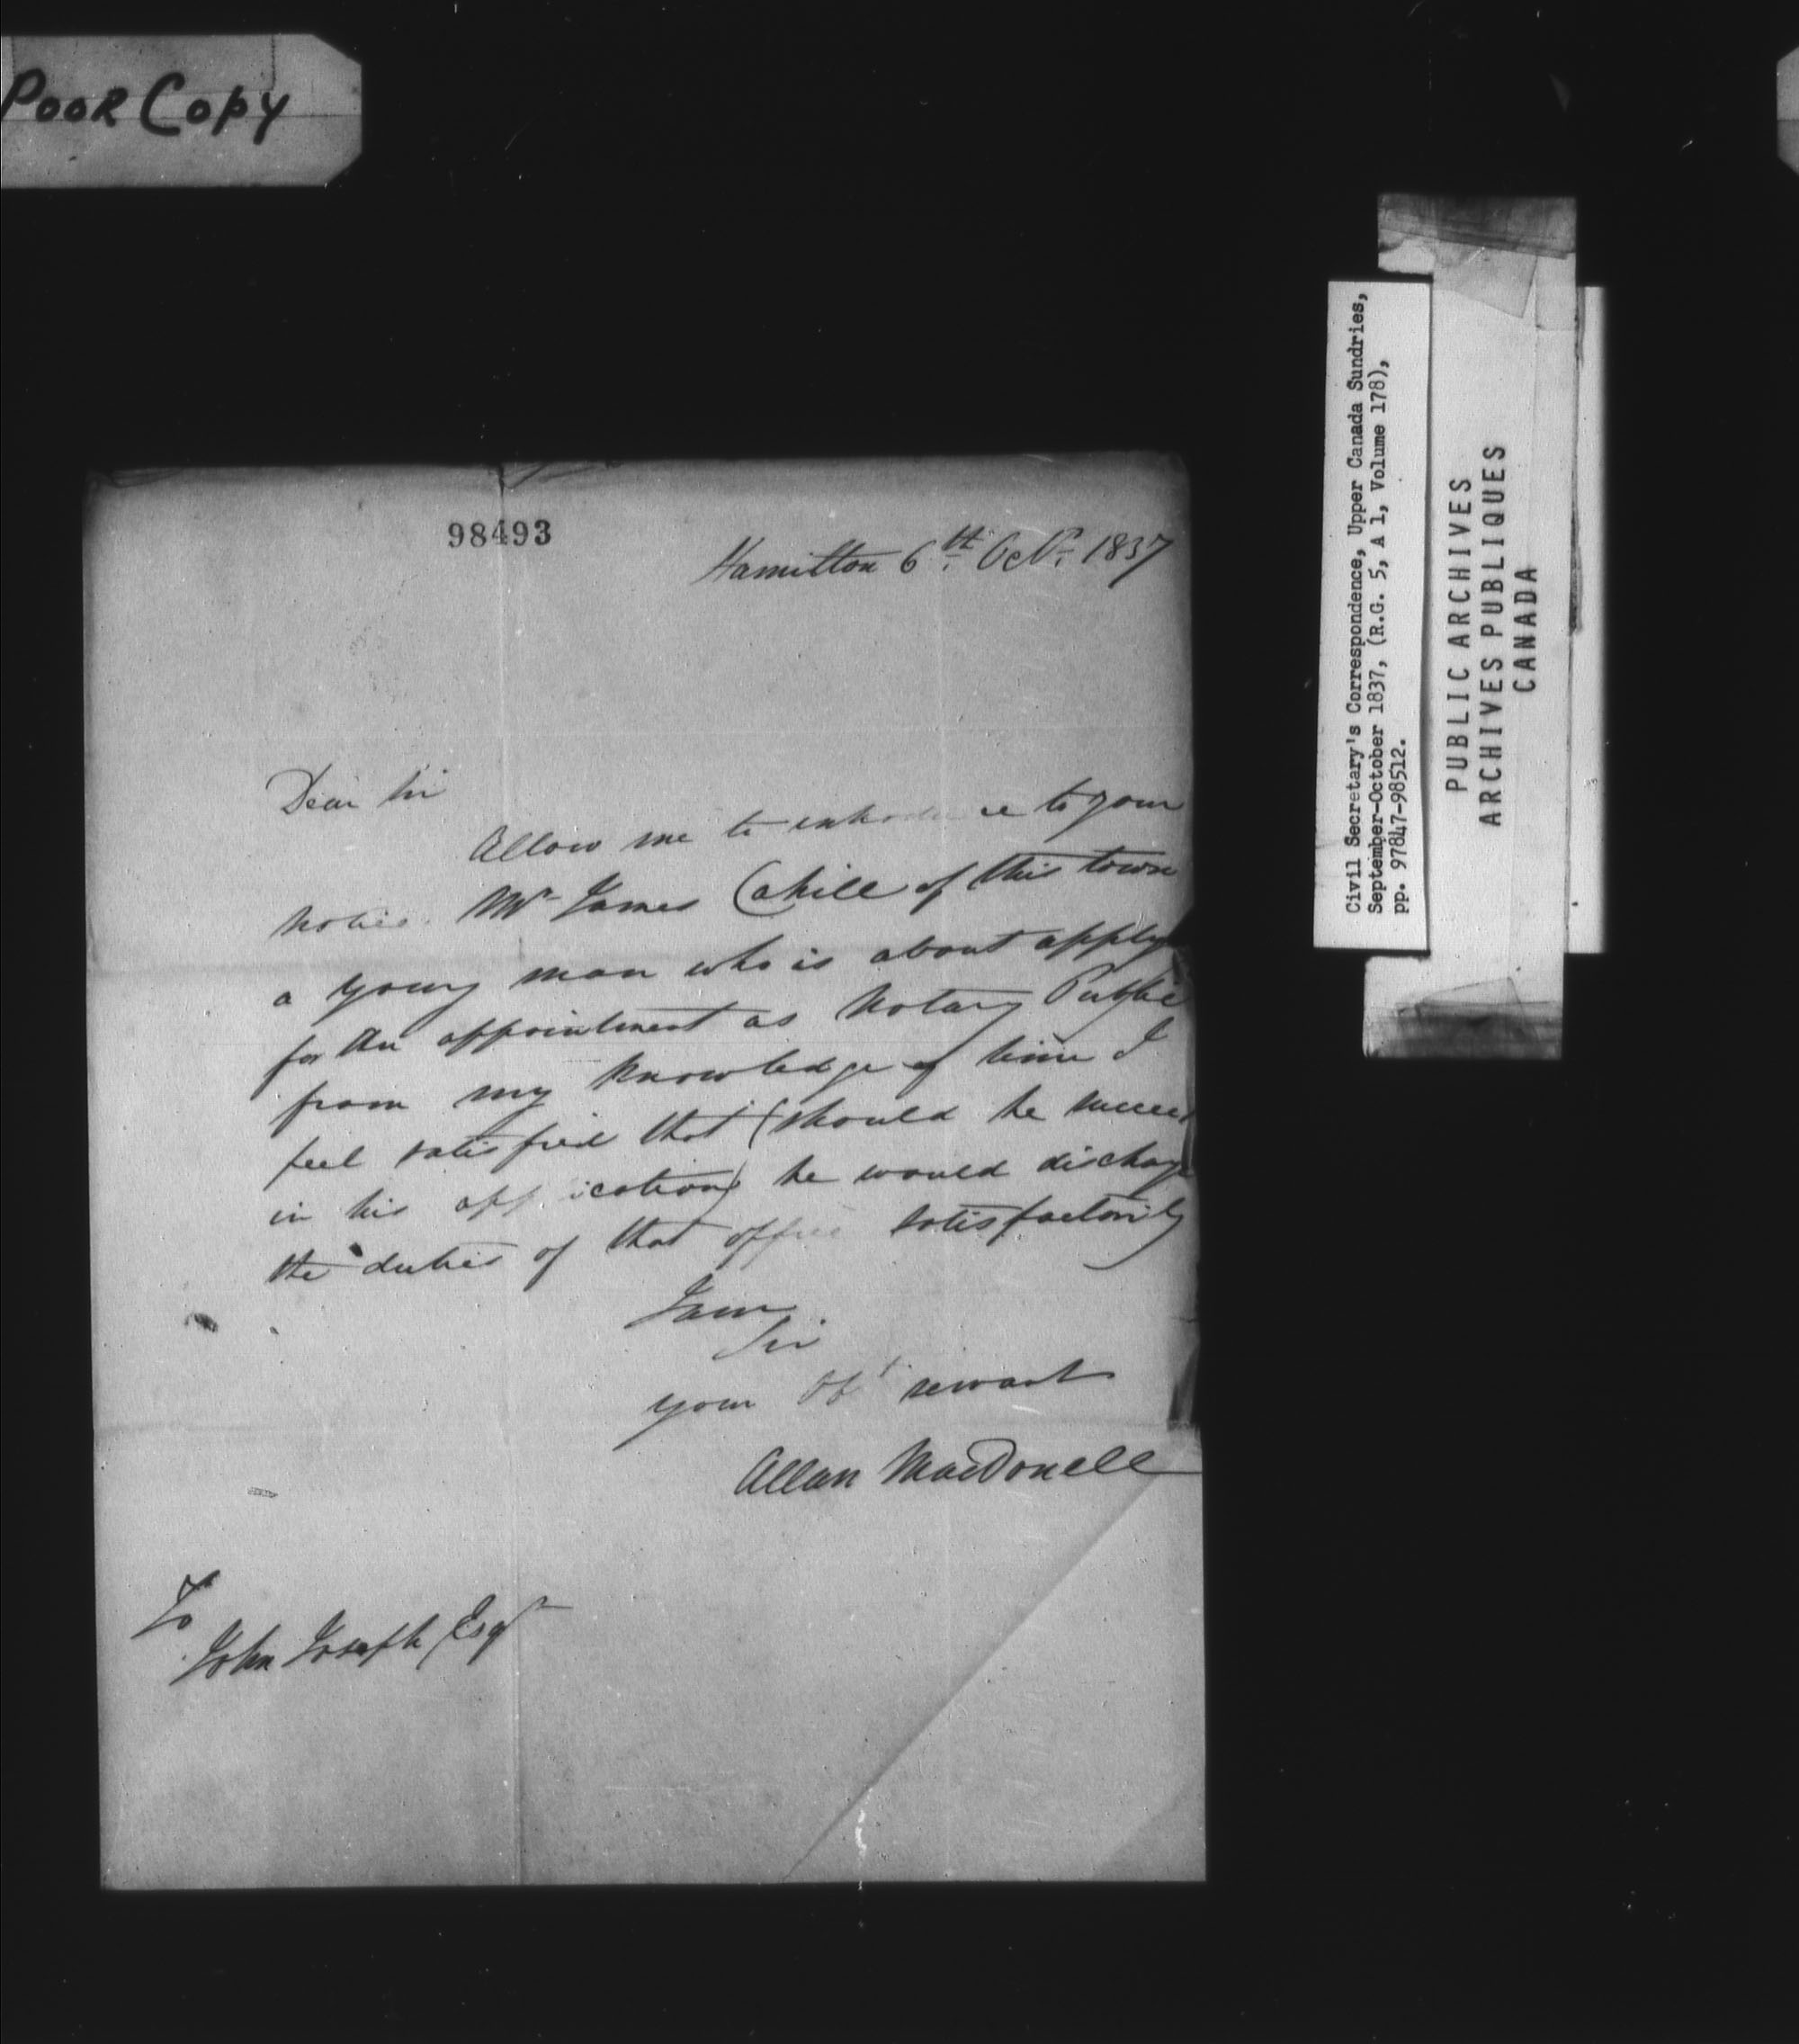 POOR COPY
98493
Hamilton 6th. Octr. 1837
Dear Sir
Allow me to introduce to your
notice Mr James Cahill of this town
a young man who is about apply
for the appointment as Notary Public
from my knowledge of him I
feel satisfied that (should he succeed
in his application) he would discharge
the duties of that office satisfactorily
I am
Sir
your Obt servant
Allan MacDonell
To
John Joseph Esqr
Civil Secretary's Correspondence, Upper Canada Sundries,
September-October 1837, (R.G. 5, A 1, Volume 178),
pp. 97847-98512.
PUBLIC ARCHIVES
ARCHIVES PUBLIQUES
CANADA